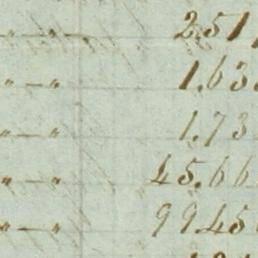 " — " — 2.51
" — " 1.63
" — " 1.73
" — " 45.66
" — " 9945